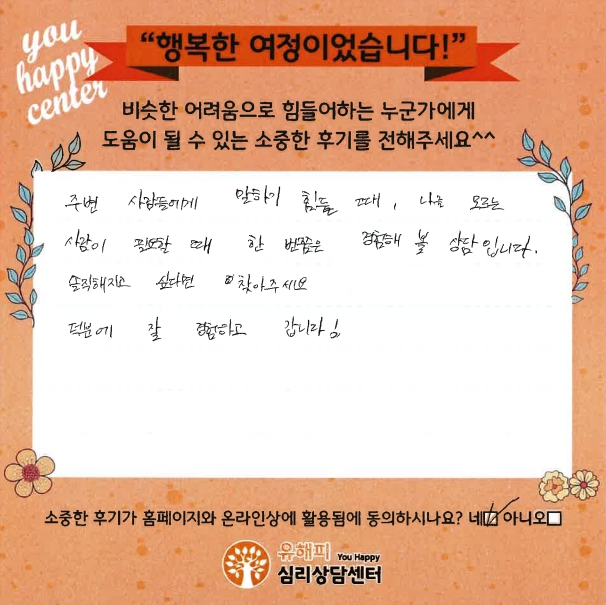 you
happy
center
“행복한 여정이었습니다!”
비슷한 어려움으로 힘들어하는 누군가에게
도움이 될 수 있는 소중한 후기를 전해주세요^^
주변 사람들에게 말하기 힘들 때, 나를 모르는
사람이 필요할 때 한 번쯤은 경험해 볼 상담입니다.
솔직해지고 싶다면 찾아주세요
덕분에 잘 경험하고 갑니다!
소중한 후기가 홈페이지와 온라인상에 활용됨에 동의하시나요? 네☑ 아니오☐
유해피 You Happy
심리상담센터